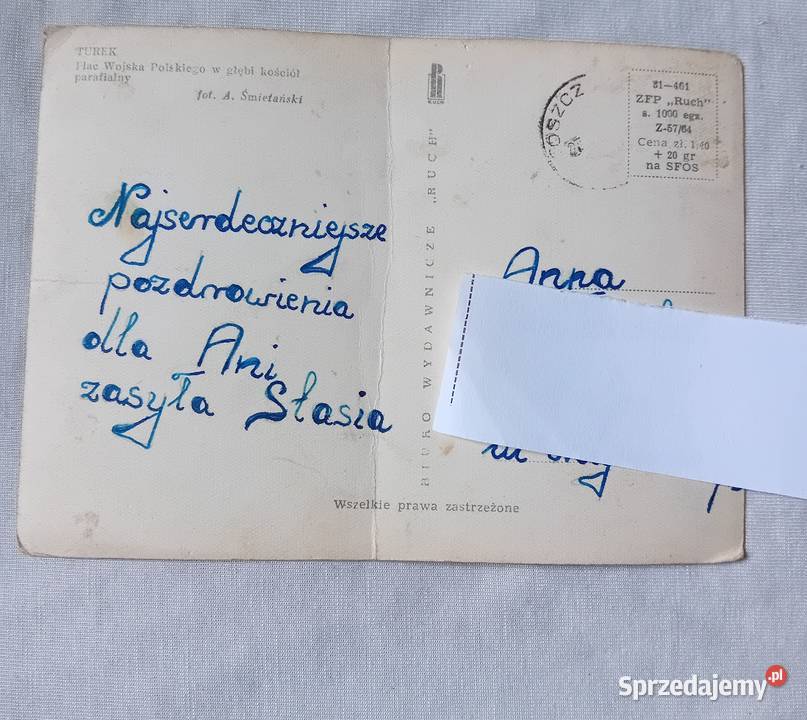 TUREK
Plac Wojska Polskiego w głębi kościół
parafialny
fot. A. Śmietański
Najserdeczniejsze
pozdrowienia
dla Ani
zasyła Stasia
BIURO WYDAWNICZE „RUCH"
RUCH
OSZCZ
81—461
ZFP „Ruch"
s. 1000 egz.
Z-57/64
Cena zł. 1,40
+ 20 gr
na SFOS
Anna
Wszelkie prawa zastrzeżone
Sprzedajemy.pl